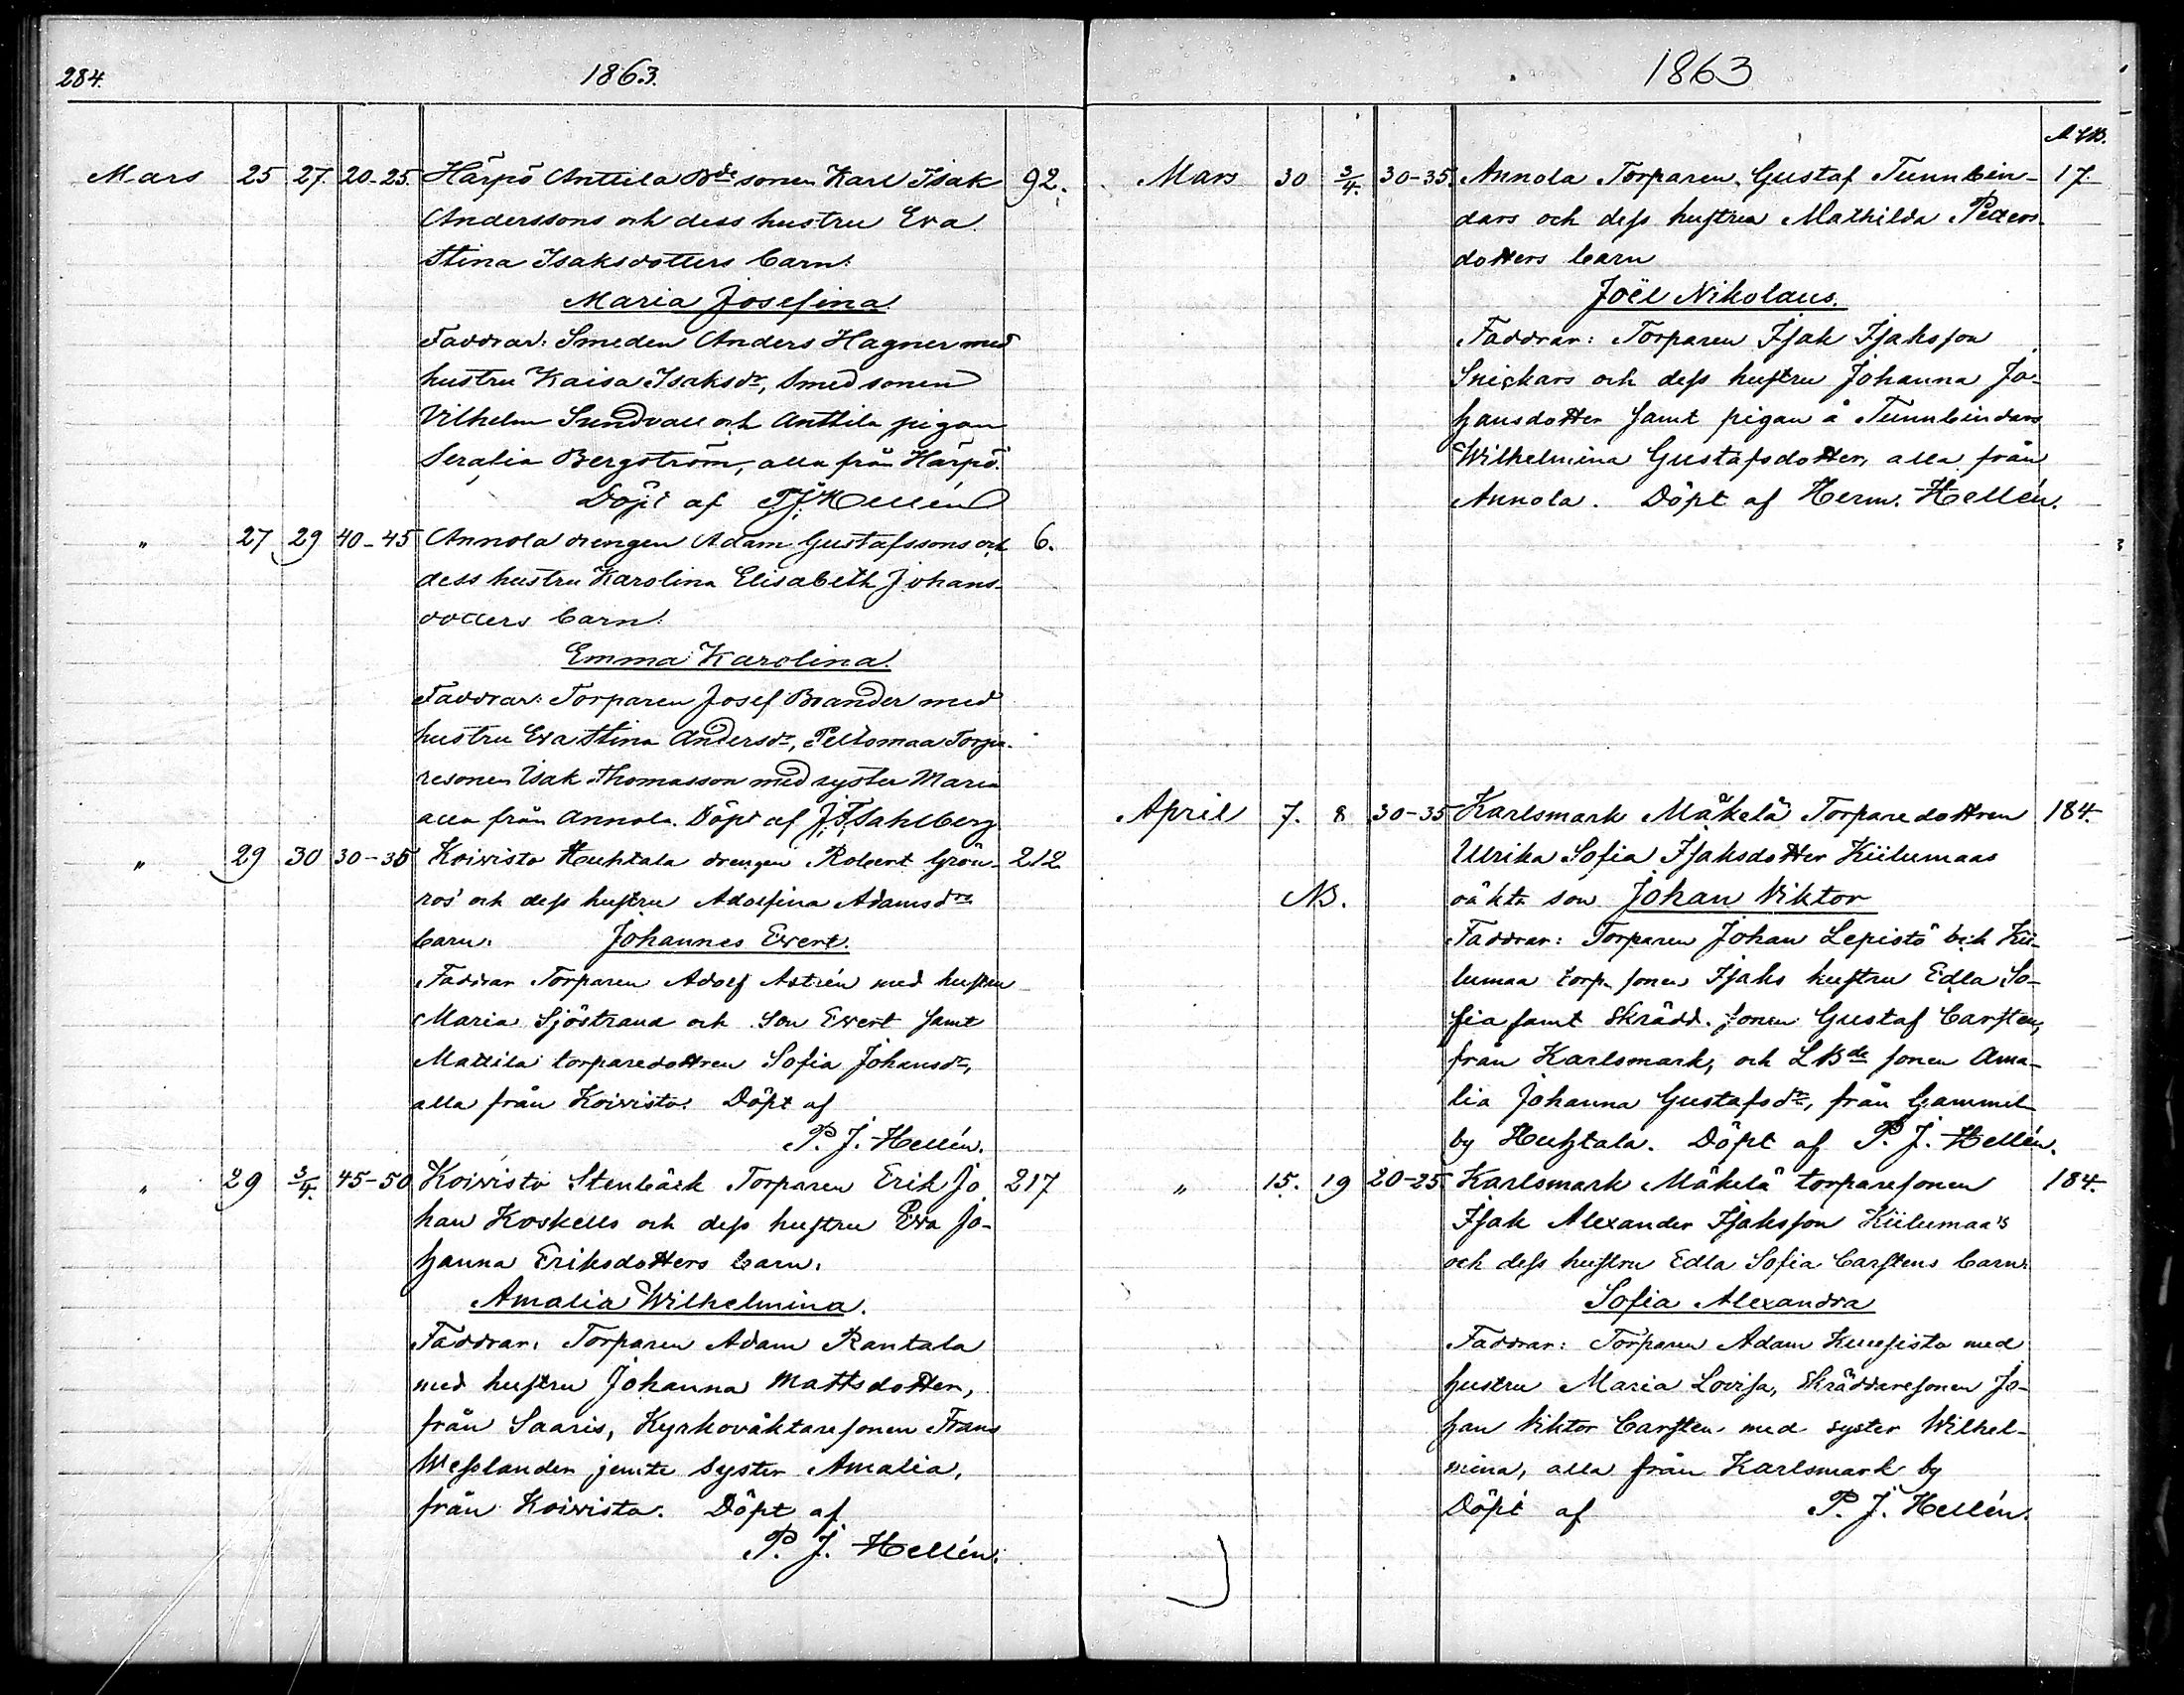 284.
1863.
Mars 25 27. 20-25. Härpö Anttila Bde sonen Karl Isak 92.
Anderssons och dess hustru Eva
Stina Isaksdotters barn:
Maria Josefina.
Faddrar: Smeden Anders Hagner med
hustru Kaisa Isaksdr, Smedsonen
Vilhelm Sundvall och Anttila pigan
Serafia Bergström, alla från Härpö.
Döpt af P.J. Hellén
" 27 29 40-45 Annola drengen Adam Gustafssons och 6.
dess hustru Karolina Elisabeth Johans-
dotters barn:
Emma Karolina.
Faddrar: Torparen Josef Brander med
hustru Eva Stina Andersdr, Peltomaa Torpa-
resonen Isak Thomasson med syster Maria
alla från Annola. Döpt af J.F. Sahlberg
" 29 30 30-35 Koivisto Huhtala drengen Robert Grön- 212
ros' och dess hustru Adolfina Adamsdrs
barn: Johannes Evert.
Faddrar Torparen Adolf Astrén med hustru
Maria Sjöstrand och son Evert samt
Mattila torparedottren Sofia Johansdr,
alla från Koivisto. Döpt af
P. J. Hellén.
" 29 3/4. 45-50 Koivisto Stenbäck Torparen Erik Jo 217
han Koskells och dess hustru Eva Jo-
hanna Eriksdotters barn,
Amalia Wilhelmina.
Faddrar: Torparen Adam Rantala
med hustru Johanna Mattsdotter,
från Saaris, Kyrkoväktaresonen Frans
Wesslander jemte syster Amalia,
från Koivisto. Döpt af
P. J. Hellén.
1863
Mars 30 3/4. 30-35. Annola Torparen Gustaf Tunnbin- 17
dars och dess hustru Mathilda Petters-
dotters barn
Joël Nikolaus.
Faddrar: Torparen Isak Isaksson
Snickars och dess hustru Johanna Jo-
hansdotter samt pigan å Tunnbindars
Wilhelmina Gustafsdotter, alla från
Annola. Döpt af Herm. Hellén.
April 7. 8 30-35 Karlsmark Mäkelä Torparedottren 184.
Ulrika Sofia Isaksdotter Kiilumaas
NB. oäkta son Johan Viktor
Faddrar: Torparen Johan Lepistö och Kii-
lumaa torp. sonen Isaks hustru Edla So-
fia samt Skrädd. sonen Gustaf Carsten,
från Karlsmark, och LBde sonen Ama-
lia Johanna Gustafsdr, från Gammel-
by Huhtala. Döpt af P. J. Hellén.
" 15. 19 20-25. Karlsmark Mäkelä torparesonen 184.
Isak Alexander Isaksson Kiilumaa's
och dess hustru Edla Sofia Carstens barn:
Sofia Alexandra
Faddrar: Torparen Adam med
hustru Maria Lovisa, Skräddaresonen Jo-
han Viktor Carsten med syster Wilhel-
mina, alla från Karlsmark by
Döpt af P. J. Hellén.